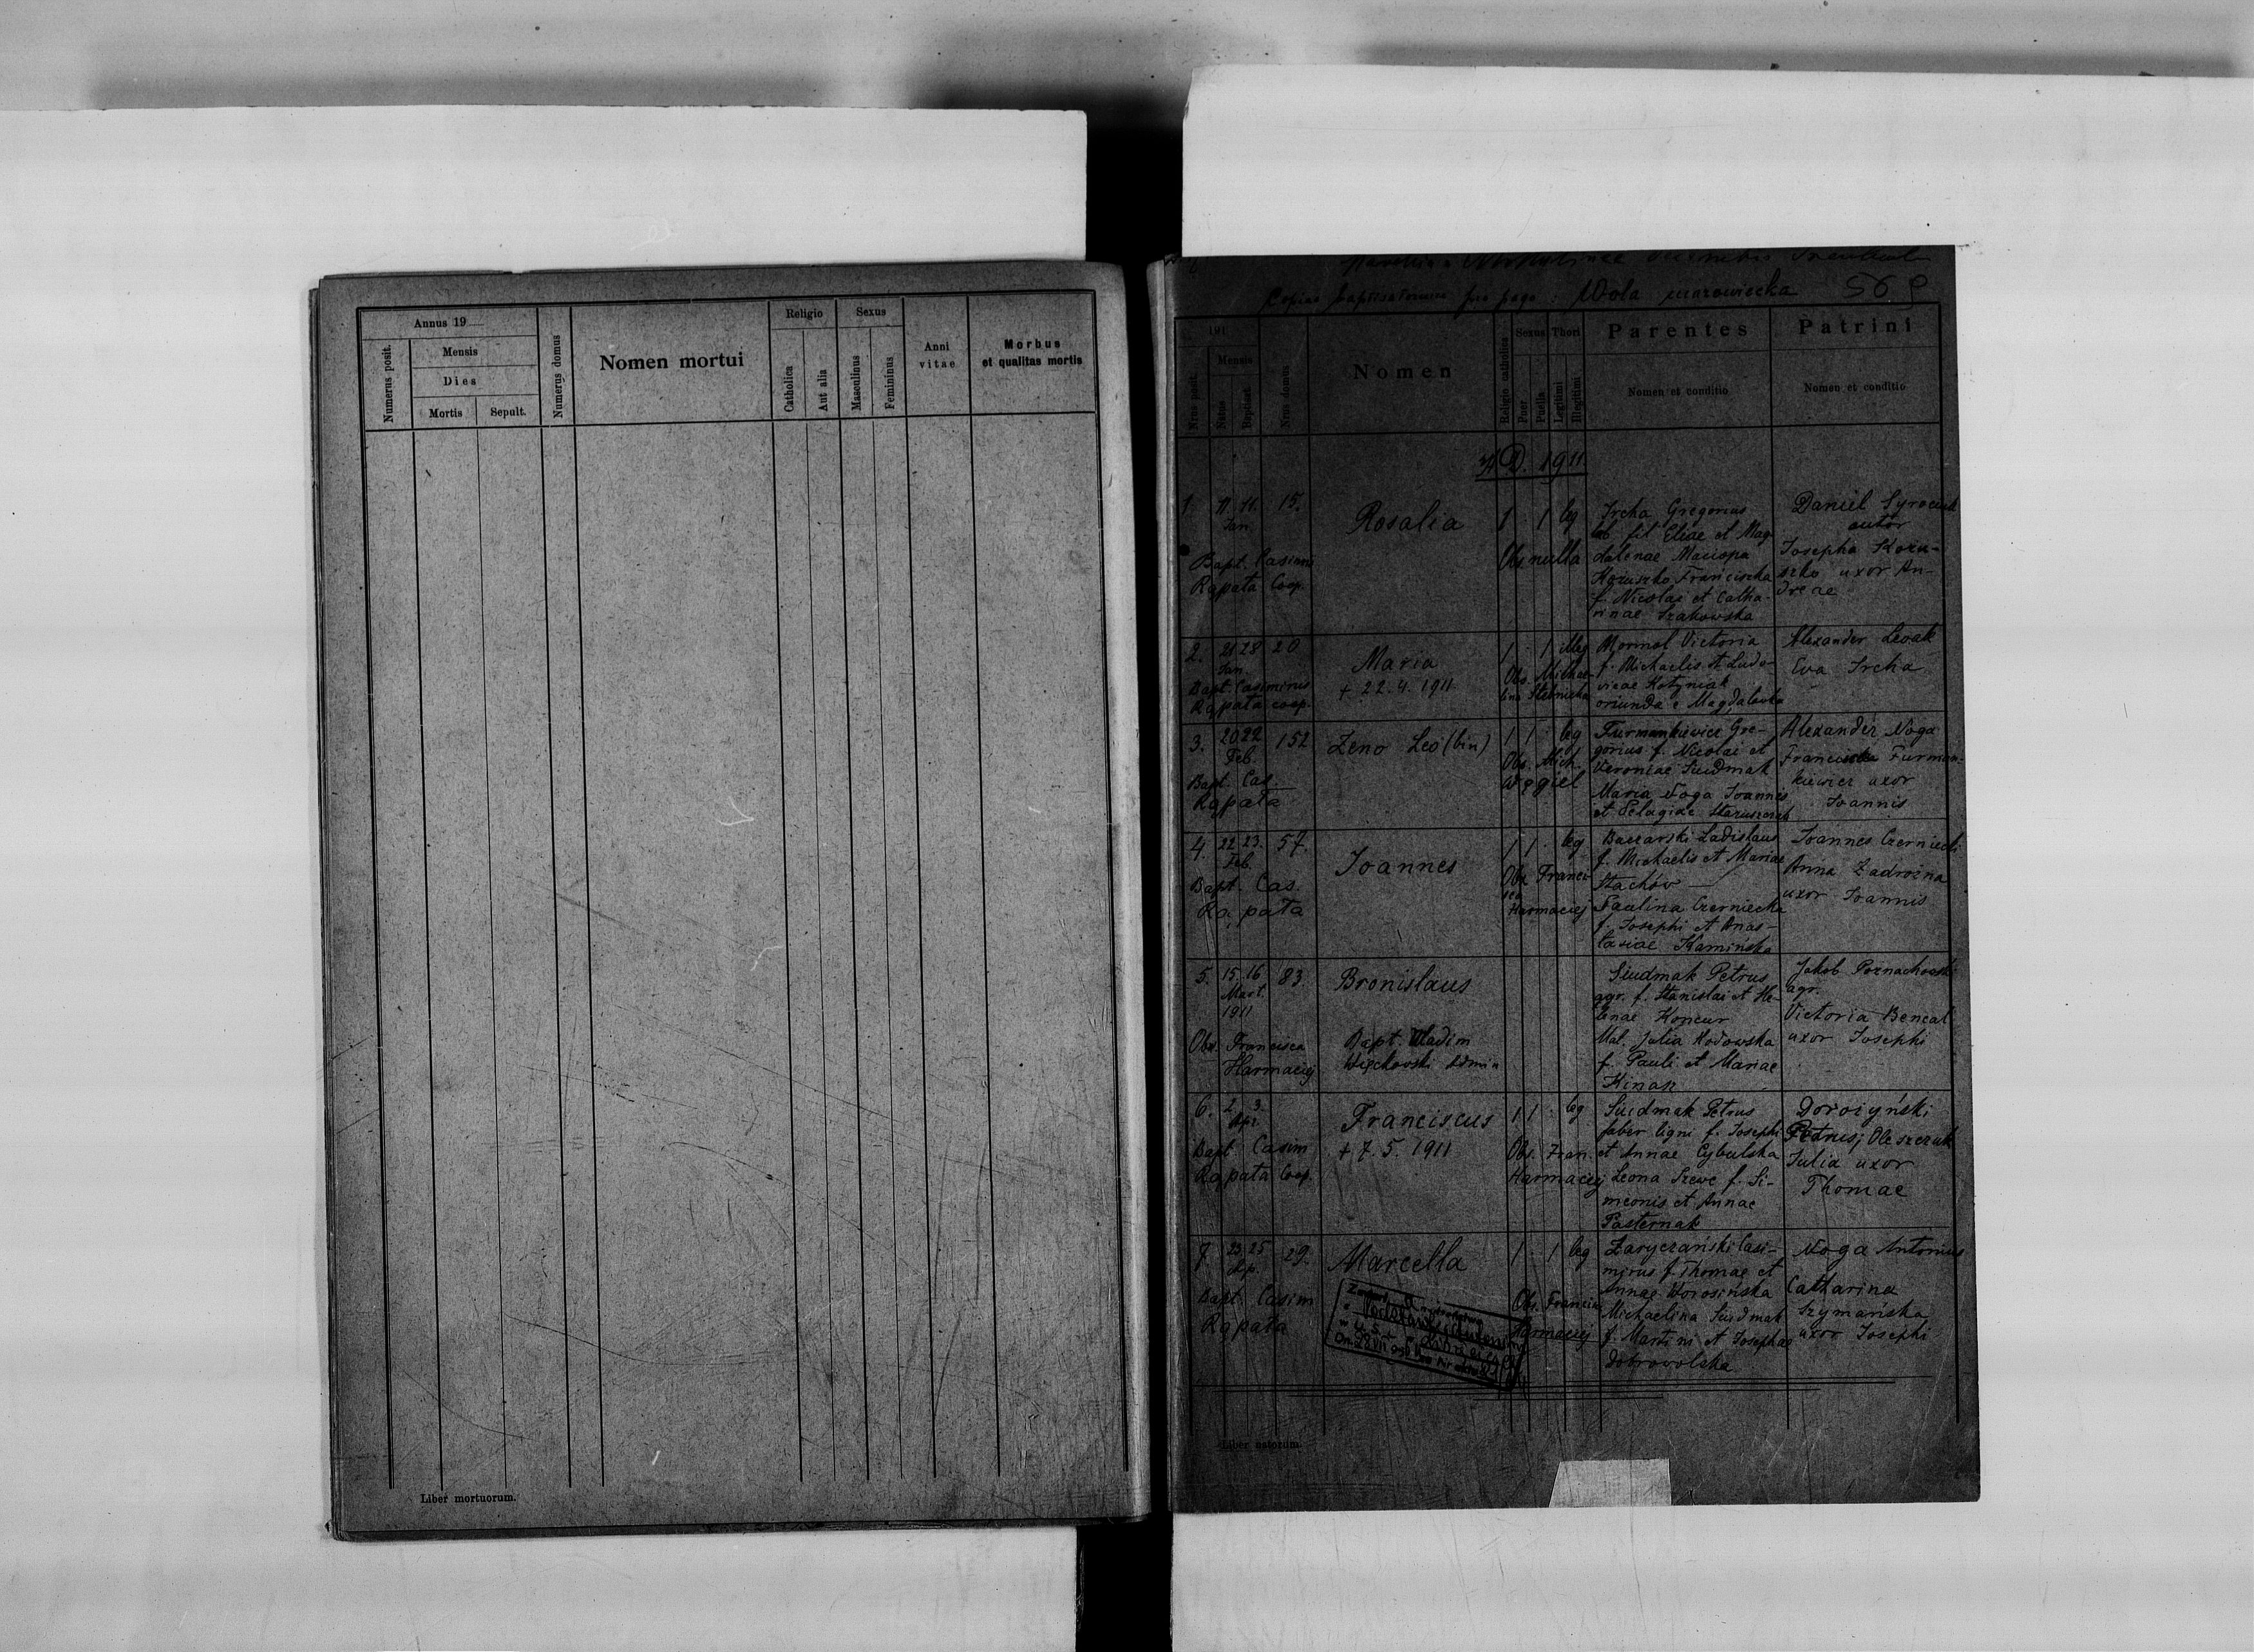 Annus 19
Numerus posit.
Mensis
Dies
Mortis
Sepult.
Numerus domus
Nomen mortui
Religio
Catholica
Aut alia
Sexus
Masculinus
Femininus
Anni
vitae
Morbus
et qualitas mortis
Liber mortuorum.
Copias baptisatorum pro pago: Wola mazowiecka 569
191
Nrus posit.
Mensis
Natus
Baptisat.
Nrus domus
Nomen
Religio catholica
Sexus
Puer
Puella
Thori
Legitimi
Illegitimi
Parentes
Nomen et conditio
Patrini
Nomen et conditio
A. D. 1911
1. 11. 11. 15.
Jan.
Bapt. Casimi
Rąpata Coop.
Rosalia
1 1 leg
Obs. nulla
Ircha Gregorius
lab fil Eliae et Mag-
dalenae Maciopa
Koziuszko Francisca
f. Nicolai et Catha-
rinae Szakowska
Daniel
autor
Josepha
szko uxor An-
dreae
2. 21 28 20
Jan.
Bapt. Casimirus
Rąpata coop.
Maria
+ 22. 4. 1911.
1 1 illeg
Obs. Michae-
lina
Mormol Victoria
f. Michaelis et Ludo-
vicae
oriunda e Magdalowka
Alexander Lewak
Eva Ircha
3. 20 22 152
Feb.
Bapt. Cas.
Rąpata
Zeno Leo (bin)
1 1 leg
Obs. Mich.
Węgiel
Furmankiewicz Gre-
gorius f. Nicolai et
Veroniae Siudmak
Maria Noga Joannes
et Pelagiae Staruszczak
Alexander Noga
Francisca Furman-
kiewicz uxor
Joannis
4. 22 23. 57.
Feb.
Bapt. Cas.
Rąpata
Joannes
1 1 leg
Obs. Franci-
sca
Harmaciej
Baczarski Ladislaus
f. Michaelis et Mariae
Stachów
Paulina Czerniecka
f. Josephi et Anas-
tasiae Kamińska
Joannes Czerniecki
Anna Zadroina
uxor Joannis
5. 15. 16 83.
Mart.
1911
Obs. Francisca
Harmaciej
Bronislaus
Bapt. Wladim
Więckowski Admin
Siudmak Petrus
agr. f. Stanislai et He-
lenae Koncur
Mat. Julia Kodowska
f. Pauli et Mariae
Kinasz
Jakob Poznachowski
agr.
Victoria Bencal
uxor Josephi
6. 2. 3.
Apr.
Bapt Casim
Rąpata Coop.
Franciscus
+ 7. 5. 1911
1 1 leg
Obs. Fran.
Harmaciej
Siudmak Petrus
faber ligni f. Josephi
et Annae Cybulska
Leona Szewc f. Si-
meonis et Annae
Pasternak
Dorożyński
Petrus; Oleszczuk
Julia uxor
Thomae
7. 23. 25 29.
Ap.
Bapt. Casim
Rąpata
Marcella
1 1 leg
Obs. Francis
Harmaciej
Zaryczański Casi-
mirus f. Thomae et
Annae Worosińska
Michaelina Siudmak
f. Martini et Josephae
Dobrowolska
Noga Antonius
Catharina
Szymańska
uxor Josephi
Liber natorum.